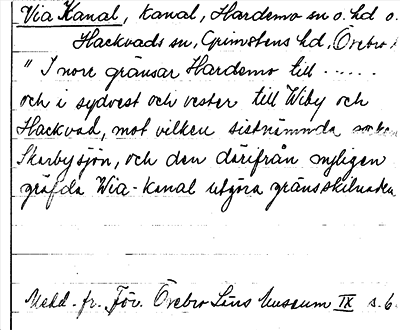 Via Kanal, kanal, Hardemo sn o. hd o.
Hackvads sn, Grimstens hd, Örebro
" I norr gränsar Hardemo till ......
och i sydvest och vester till Wiby och
Hackvad, mot vilken sistnämnda socken
Skarbysjön, och den därifrån nyligen
gräfda Wia-kanal utgöra gränsskilnaden
Medd. fr. Fören. Örebro Läns Museum IX s. 6